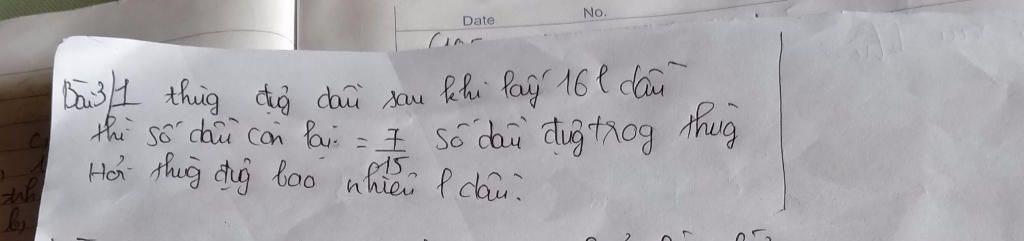 Date No.
Bài 3/ 1 thùg đựg dầu sau khi lấy 16 l dầu
thì số dầu còn lại = 7/15 số dầu đựg trog thùg
Hỏi thùg đựg bao nhiêu l dầu.